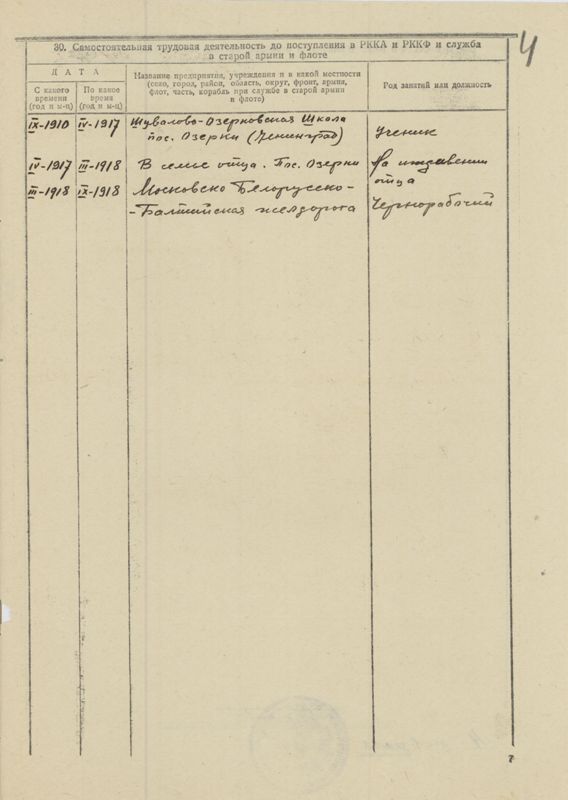 4
30. Самостоятельная трудовая деятельность до поступления в РККА и РККФ и служба
в старой армии и флоте
ДАТА
С какого
времени
(год и м-ц)
По какое
время
(год и м-ц)
Название предприятия, учреждения и в какой местности
(село, город, район, область, округ, фронт, армия,
флот, часть, корабль при службе в старой армии
и флоте)
Род занятий или должность
IX-1910 IV-1917 Шувалово-Озерковская Школа
пос. Озерки (Ленинград) Ученик
IV-1917 III-1918 В семье отца. Пос. Озерки На иждивении
отца
III-1918 IX-1918 Московско Белорусско-
-Балтийская желдорога Чернорабочий
7